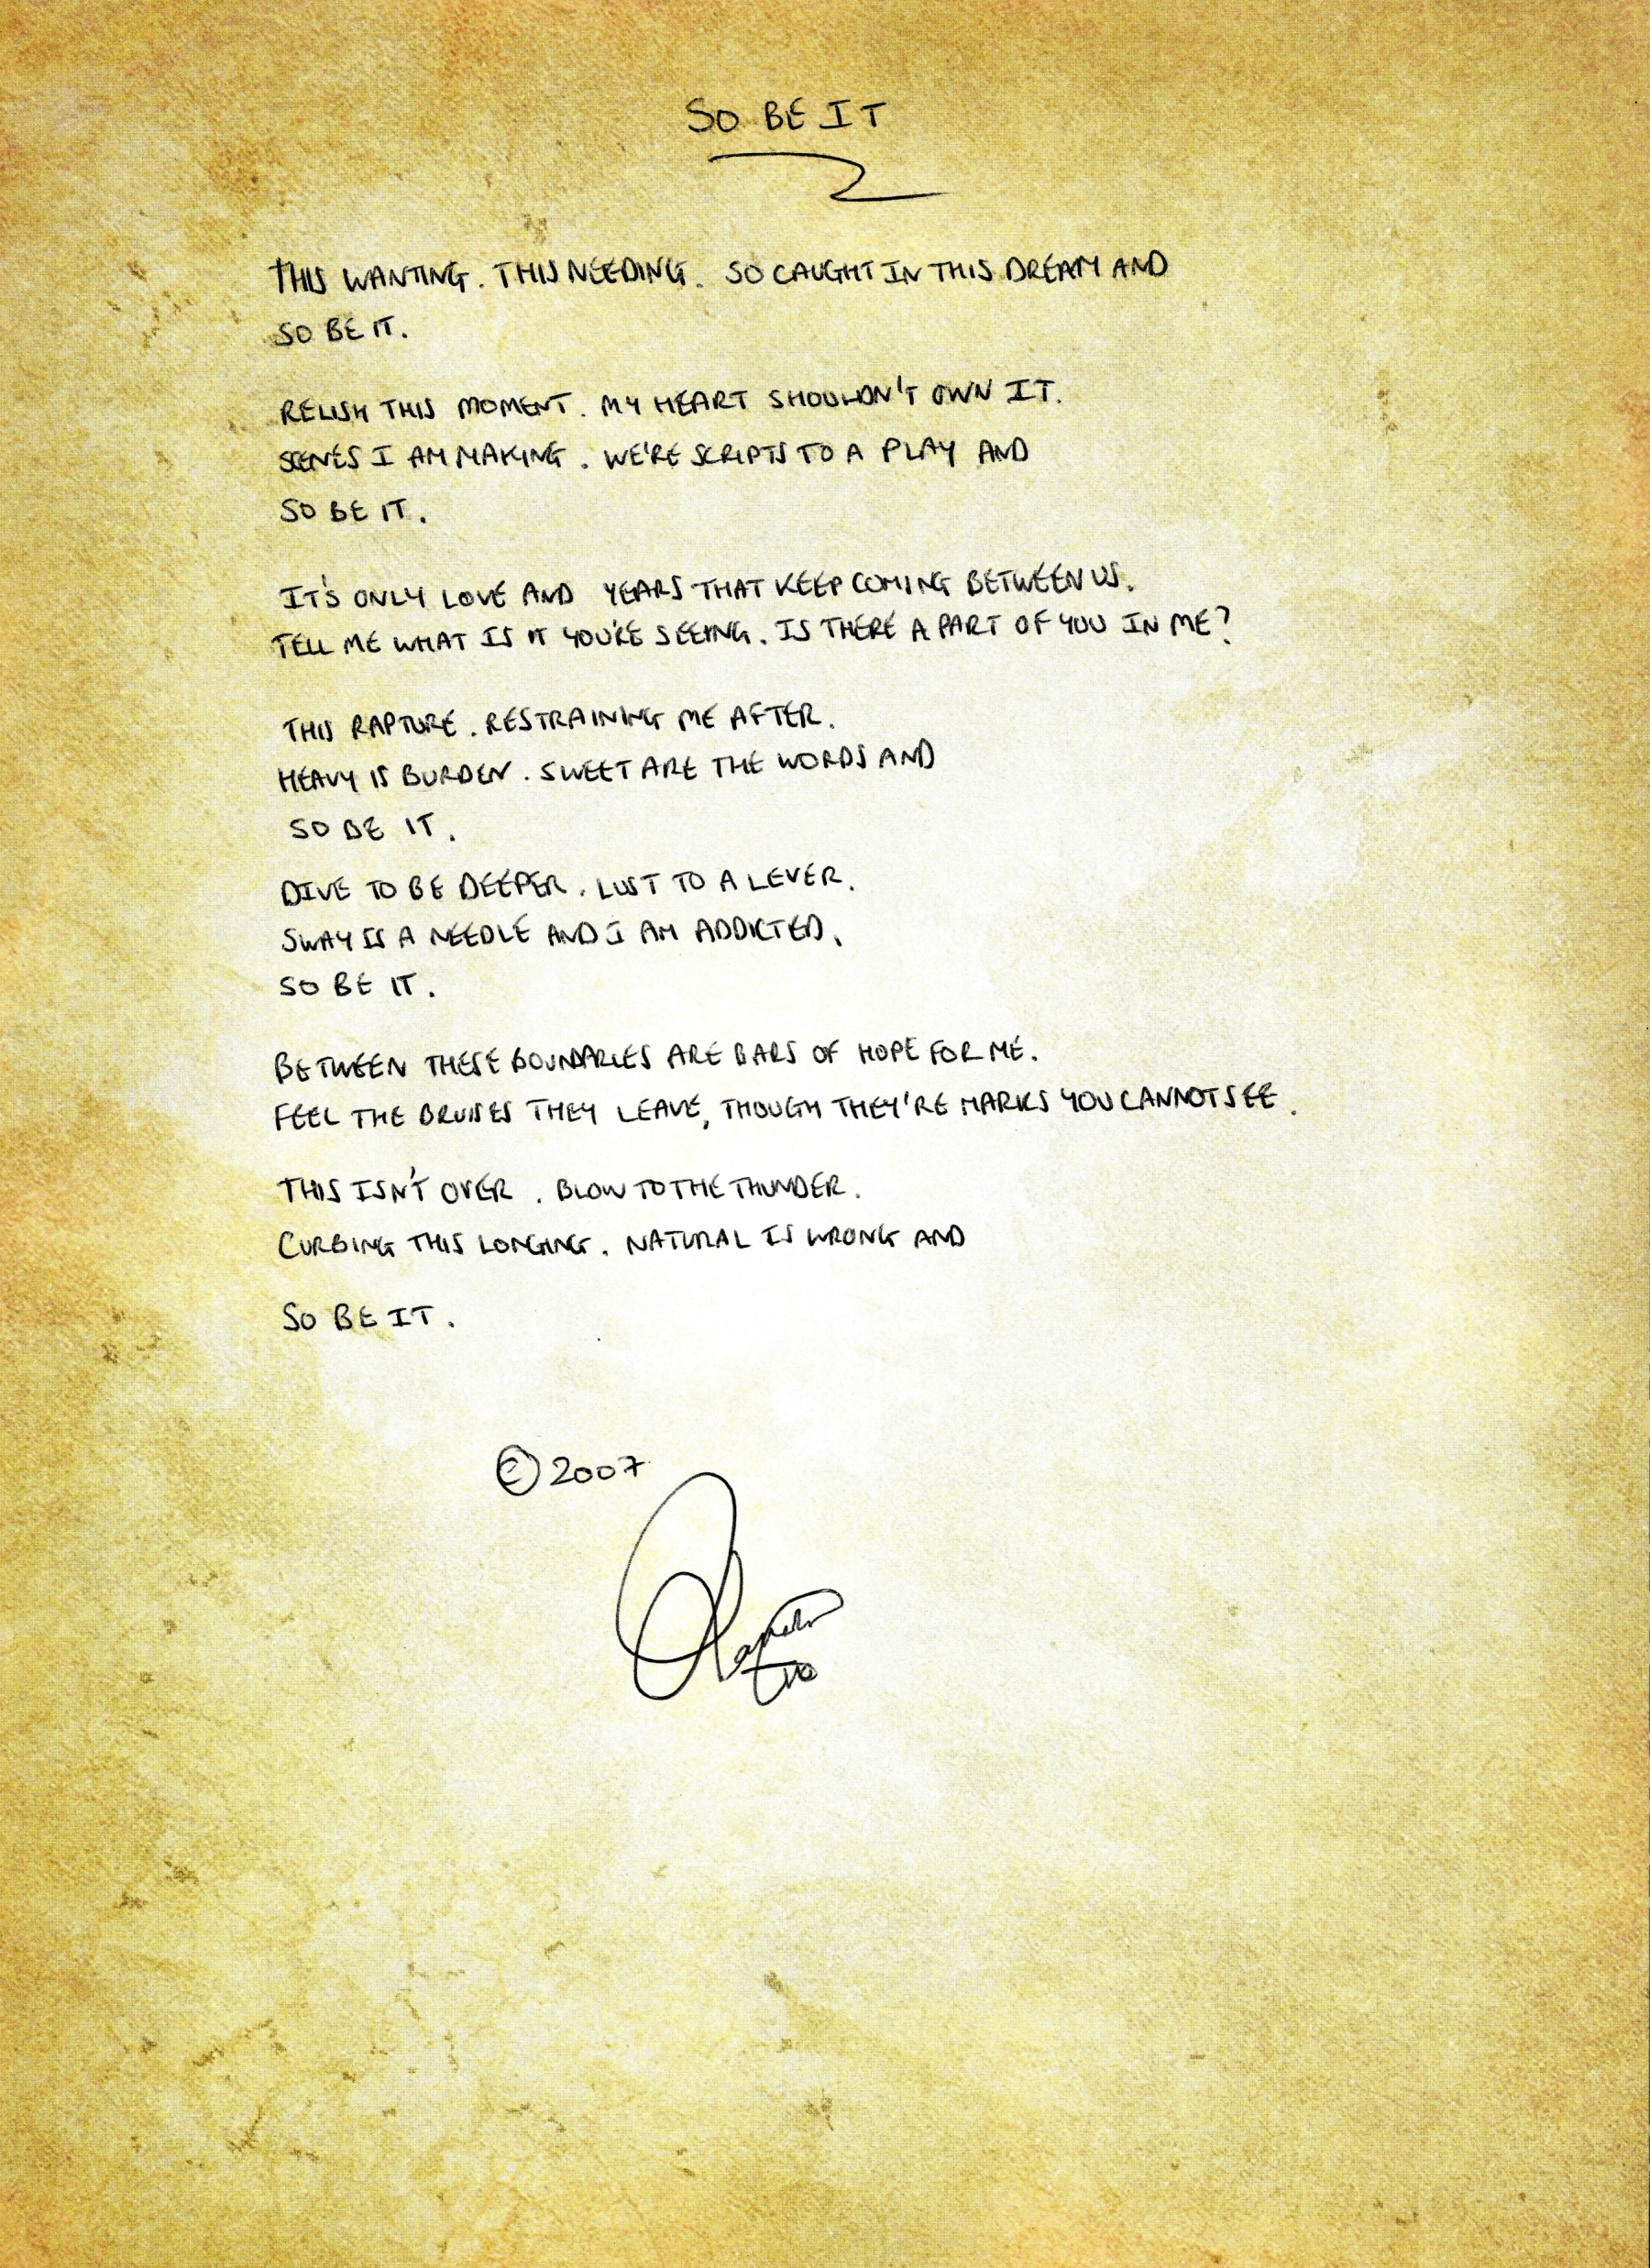 SO BE IT
THIS WANTING. THIS NEEDING. SO CAUGHT IN THIS DREAM AND
SO BE IT.
RELISH THIS MOMENT. MY HEART SHOULDN'T OWN IT.
SCENES I AM MAKING. WE'RE SCRIPTS TO A PLAY AND
SO BE IT.
IT'S ONLY LOVE AND YEARS THAT KEEP COMING BETWEEN US.
TELL ME WHAT IS IT YOU'RE SEEING. IS THERE A PART OF YOU IN ME?
THIS RAPTURE. RESTRAINING ME AFTER.
HEAVY IS BURDEN. SWEET ARE THE WORDS AND
SO BE IT.
DIVE TO BE DEEPER. LUST TO A LEVER.
SWAY IS A NEEDLE AND I AM ADDICTED.
SO BE IT.
BETWEEN THESE BOUNDARIES ARE BARS OF HOPE FOR ME.
FEEL THE BRUISES THEY LEAVE, THOUGH THEY'RE MARKS YOU CANNOT SEE.
THIS ISN'T OVER. BLOW TO THE THUNDER.
CURBING THIS LONGING. NATURAL IS WRONG AND
SO BE IT.
© 2007